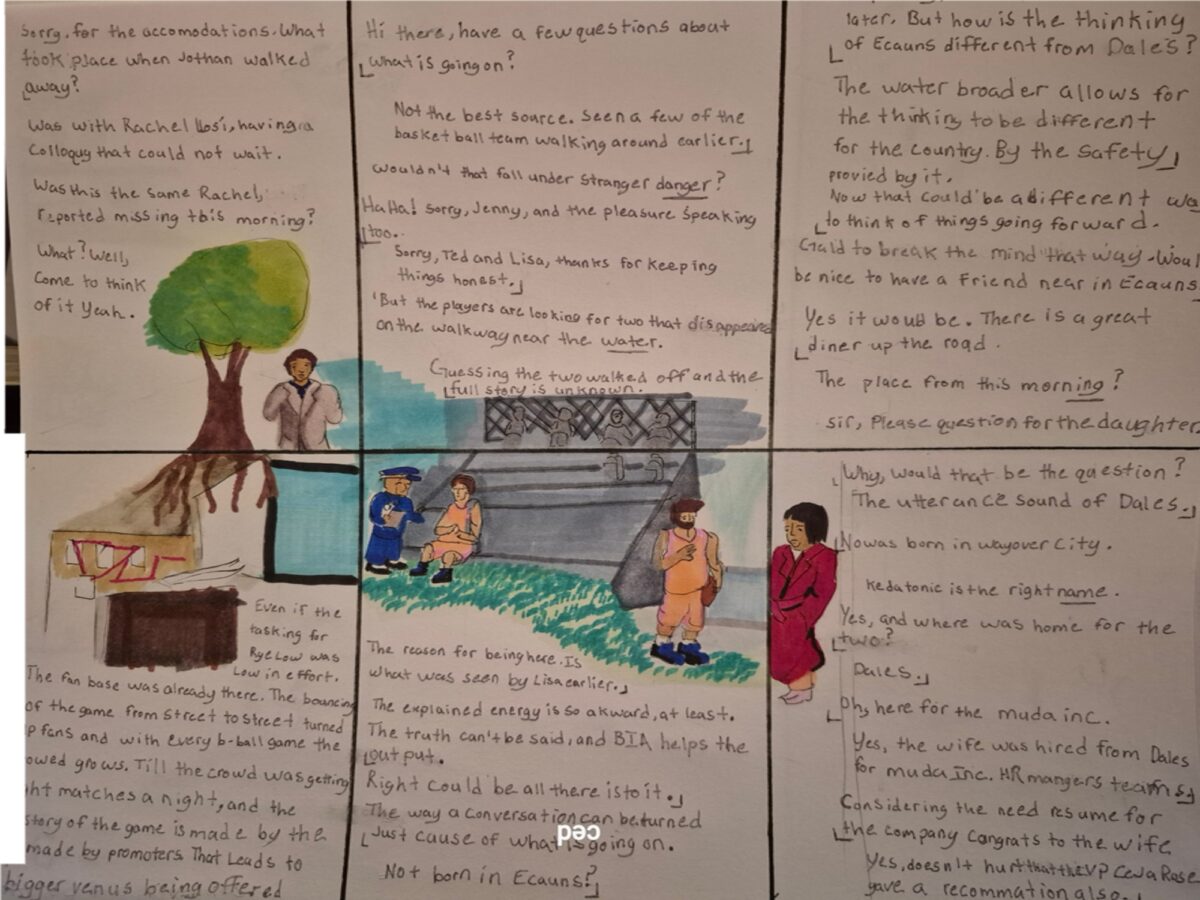 Sorry, for the accomodations. What
took place when Jothan walked
away?
Was with Rachel llosi, having a
Colloquy that could not wait.
Was this the same Rachel,
reported missing this morning?
What? Well,
Come to think
of it Yeah.
Hi there, have a few questions about
what is going on?
Not the best source. Seen a few of the
basket ball team walking around earlier.
Wouldn't that fall under stranger danger?
HaHa! Sorry, Jenny, and the pleasure speaking
too.
Sorry, Ted and Lisa, thanks for keeping
things honest.
'But the players are looking for two that disappeared
on the walkway near the water.
Guessing the two walked off and the
full story is unknown.
later. But how is the thinking
of Ecauns different from Dales?
The water broader allows for
the thinking to be different
for the country. By the safety
provied by it.
Now that could be a different wa
to think of things going forward.
Gald to break the mind that way. Woul
be nice to have a Friend near in Ecauns
Yes it woulb be. There is a great
diner up the road.
The place from this morning?
sir, Please question for the daughter.
Even if the
tasking for
RyeLow was
Low in effort.
The fan base was already there. The bouncing
of the game from street to street turned
p fans and with every b-ball game the
owed grows. Till the crowd was getting
ht matches a night, and the
story of the game is made by the
made by promoters. That Leads to
bigger venus being offered
The reason for being here. Is
what was seen by Lisa earlier.
The explained energy is so akward, at least.
The truth can't be said, and BIA helps the
out put.
Right could be all there is to it.
The way a conversation can be turned
Just cause of what is going on.
ced
Not born in Ecauns?
Why, would that be the question?
The utterance sound of Dales.
No was born in wayover City.
kedatonic is the right name.
Yes, and where was home for the
two?
Dales.
Oh, here for the muda inc.
Yes, the wife was hired from Dales
for muda Inc. HR mangers teams
Considering the need resume for
the company Congrats to the wife
Yes, doesn't hurt that the VP Ceja Rase
gave a recommation also.